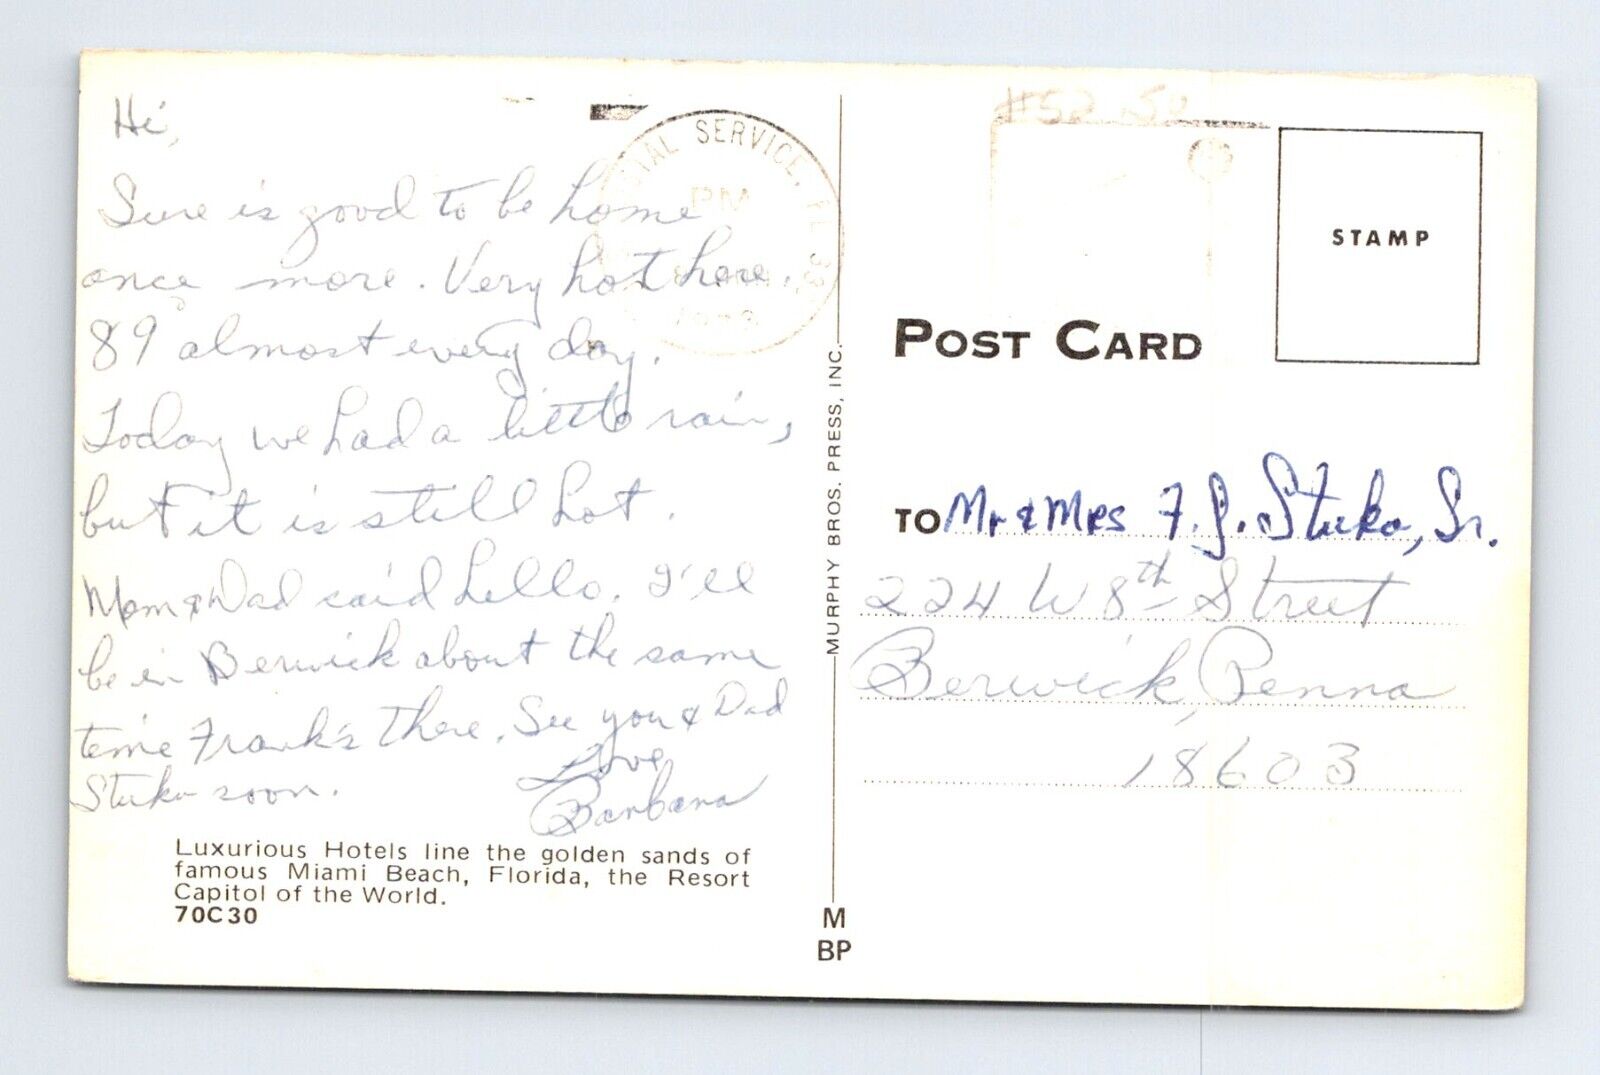 Hi,
Sure is good to be home
once more. Very hot here.
89 almost every day.
Today we had a little rain,
but it is still hot.
Mom & Dad said hello. I'll
be in Berwick about the same
time Frank's there. See you & Dad
Stuka soon.
Love
Barbara
Luxurious Hotels line the golden sands of
famous Miami Beach, Florida, the Resort
Capitol of the World.
70C30
POSTAL SERVICE, FL 33
PM
MURPHY BROS. PRESS, INC.
M
BP
#52
STAMP
POST CARD
TO Mr & Mrs F. J. Stuka, Sr.
224 W 8th Street
Berwick, Penna
18603